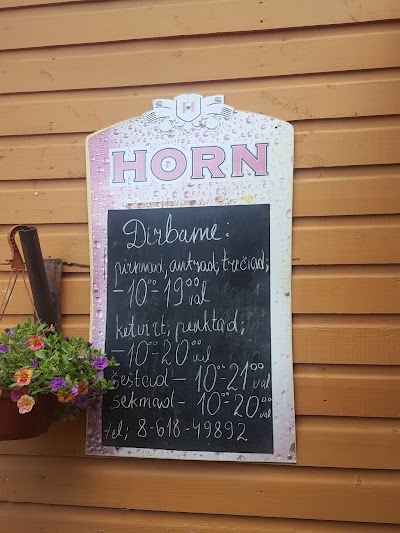 H
HORN
Dirbame:
pirmad, antrad, trečiad;
- 10⁰⁰ - 19⁰⁰ val
ketvirt, penktad;
- 10⁰⁰ - 20⁰⁰ val
šeštad - 10⁰⁰ - 21⁰⁰ val
sekmad - 10⁰⁰ - 20⁰⁰ val
tel; 8-618-49892